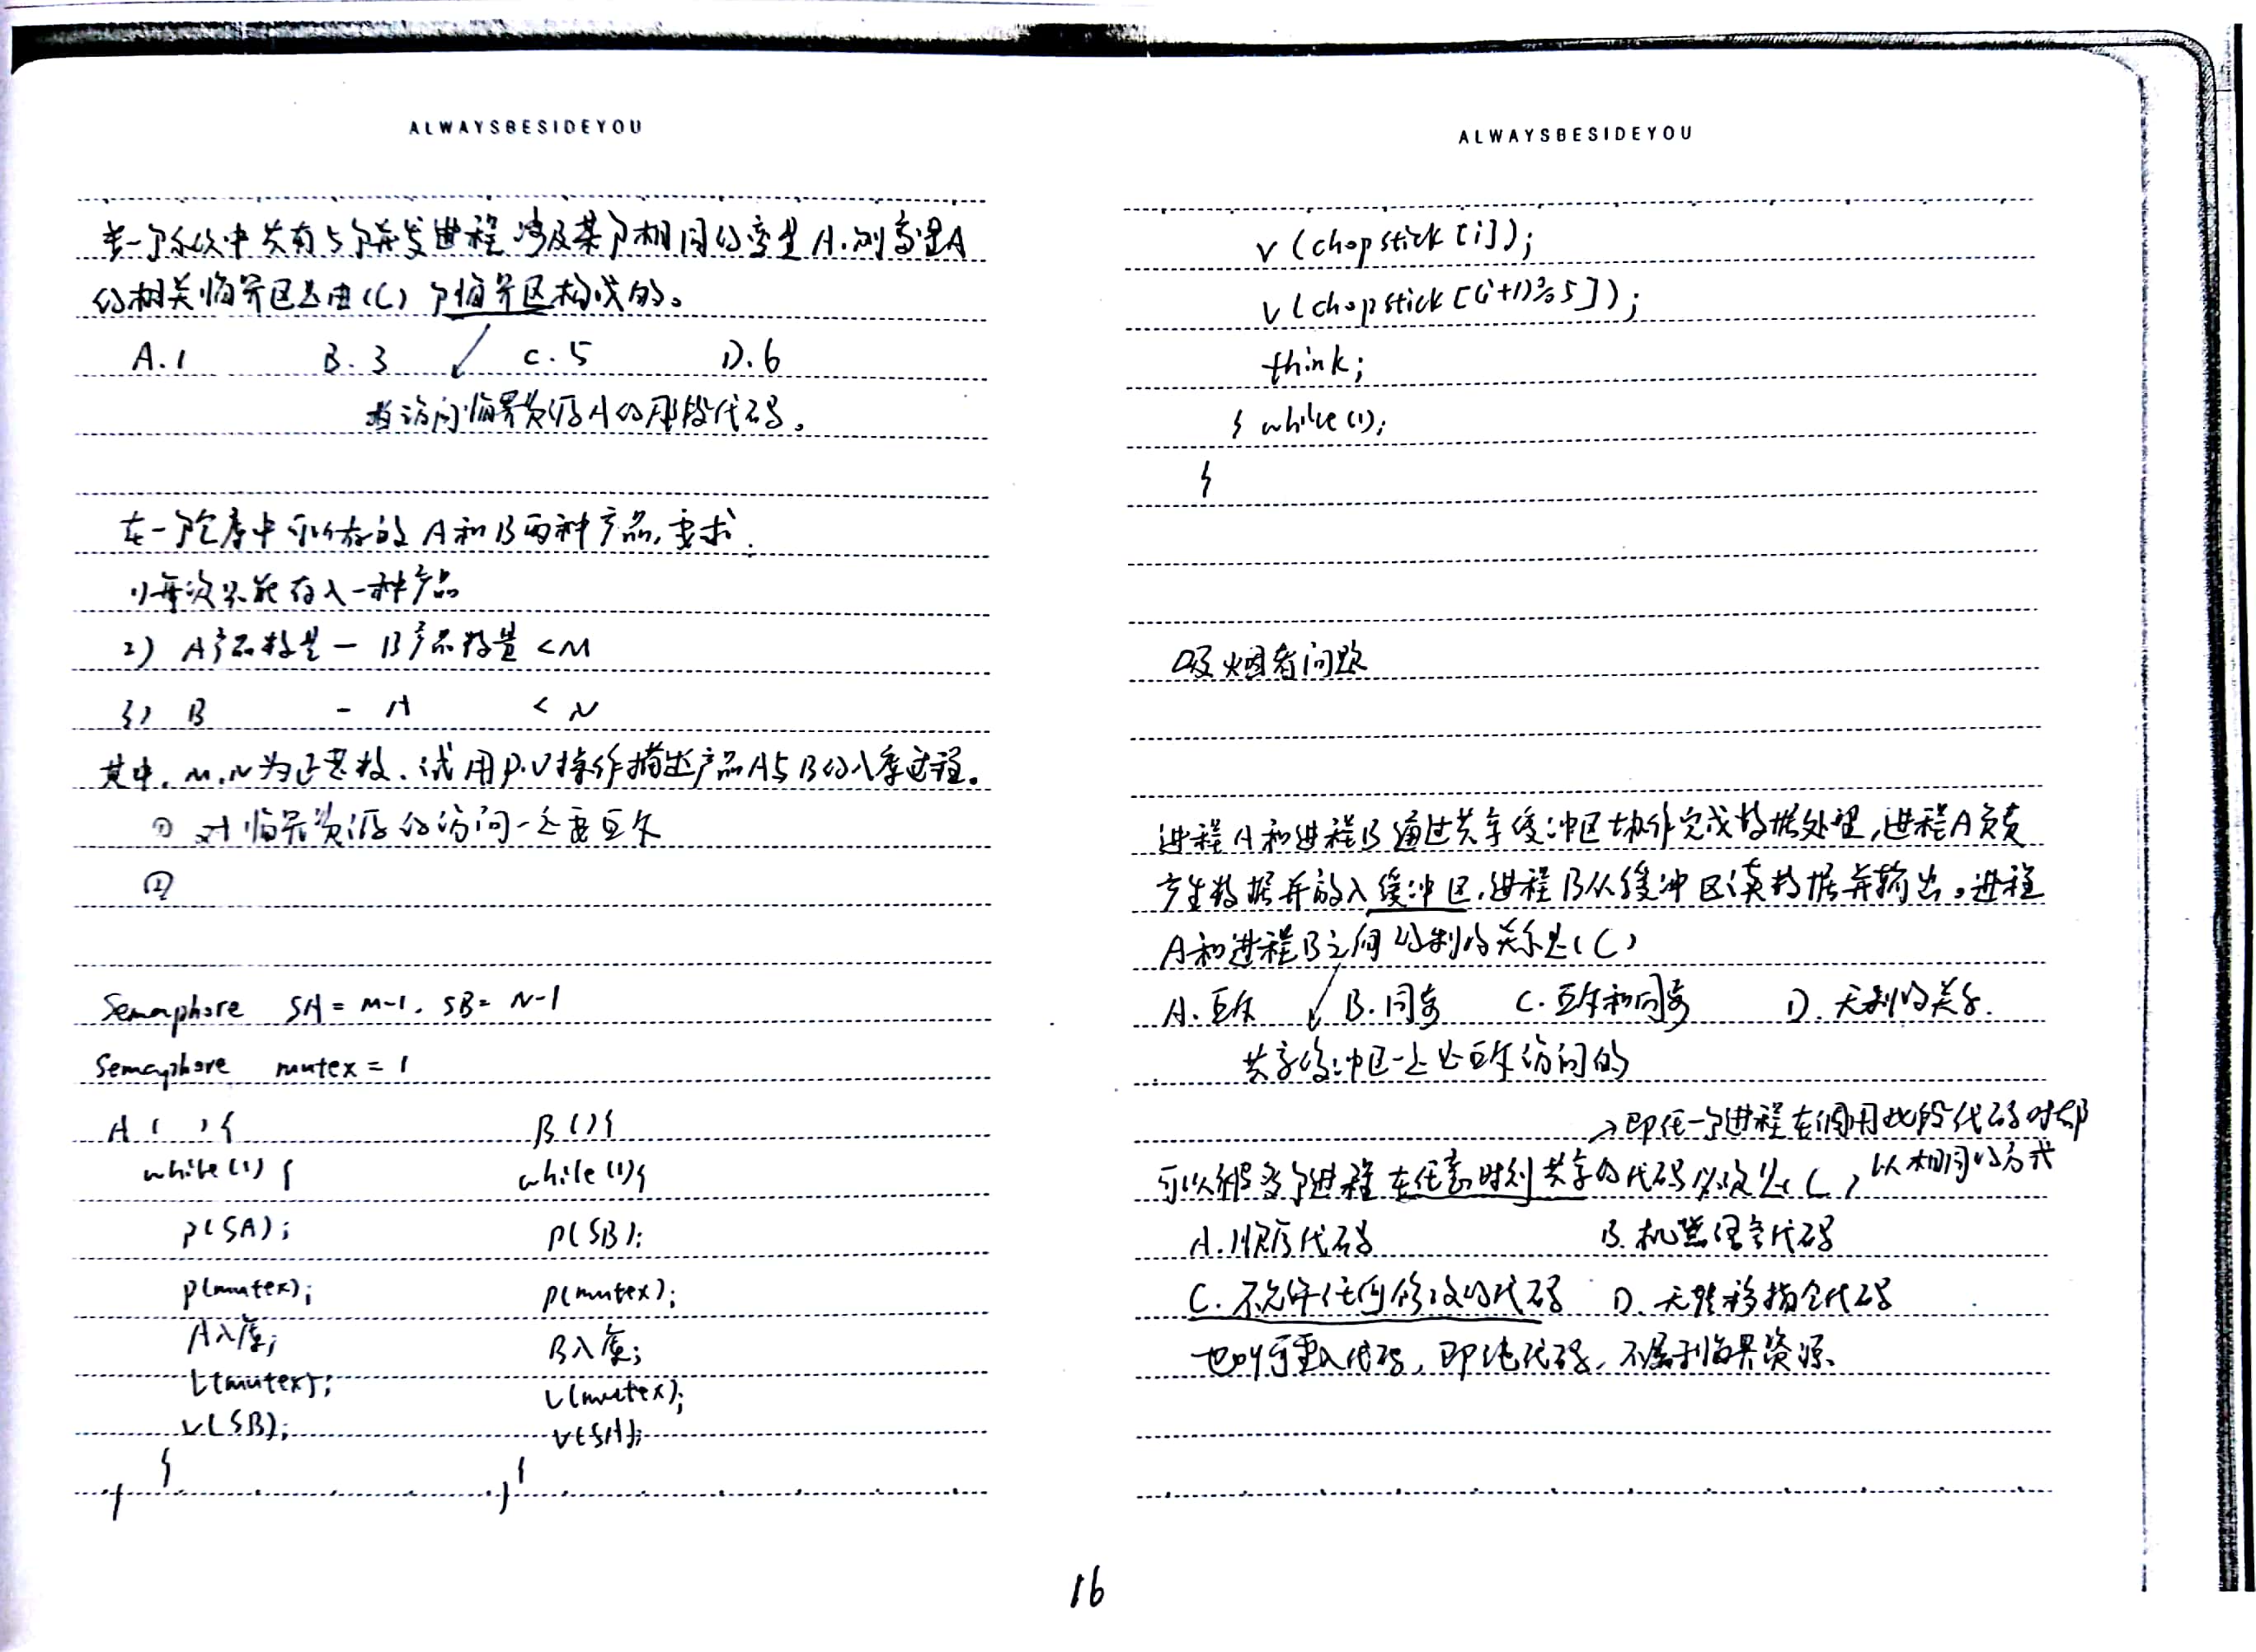 ALWAYSBESIDEYOU
若一个系统中共有5个并发进程涉及某个相同的变量A.则变量A
的相关临界区是由(C)个临界区构成的。
A.1 B.3 C.5 D.6
指访问临界资源A的那段代码。
在一个仓库中可以存放A和B两种产品,要求:
1)每次只能存入一种产品
2) A产品数量-B产品数量<M
3) B - A < N
其中,M,N为正整数.试用P.V操作描述产品A与B的入库过程。
① 对临界资源的访问一定要互斥
②
Semaphore SA=M-1, SB=N-1
Semaphore mutex=1
A( ){ B(){
while(1){ while(1){
P(SA); P(SB);
P(mutex); P(mutex);
A入库; B入库;
V(mutex); V(mutex);
V(SB); V(SA);
} }
} }
ALWAYSBESIDEYOU
V(chopstick[i]);
V(chopstick[(i+1)%5]);
think;
} while(1);
}
吸烟者问题
进程A和进程B通过共享缓冲区协作完成数据处理,进程A负责
产生数据并放入缓冲区,进程B从缓冲区读数据并输出。进程
A和进程B之间的制约关系是(C)
A.互斥 B.同步 C.互斥和同步 D.无制约关系.
共享缓冲区一定是互斥访问的
→即任一个进程在调用此段代码时都
以相同的方式
可以被多个进程在任意时刻共享的代码必须是(C)
A.顺序代码 B.机器语言代码
C.不允许任何修改的代码 D.无转移指令代码
也叫可重入代码,即纯代码,不属于临界资源.
16